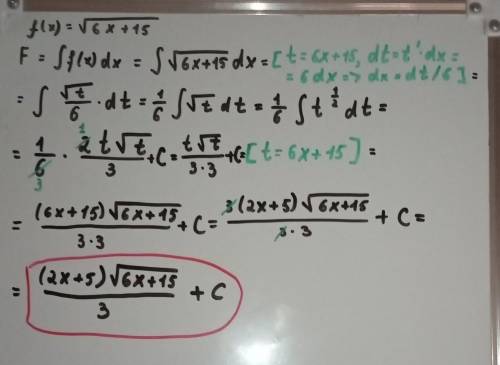 f(x) = √(6x+15)
F = ∫ f(x) dx = ∫ √(6x+15) dx = [t = 6x+15, dt = t' · dx =
= 6 dx => dx = dt/6] =
= ∫ √t/6 · dt = 1/6 ∫ √t dt = 1/6 ∫ t^(1/2) dt =
= 1/6 3 · 1 2 t√t/3 + C = t√t/(3·3) + C = [t = 6x+15] =
= (6x+15)√(6x+15)/(3·3) + C = 3(2x+5)√(6x+15)/(3·3) + C =
= (2x+5)√(6x+15)/3 + C